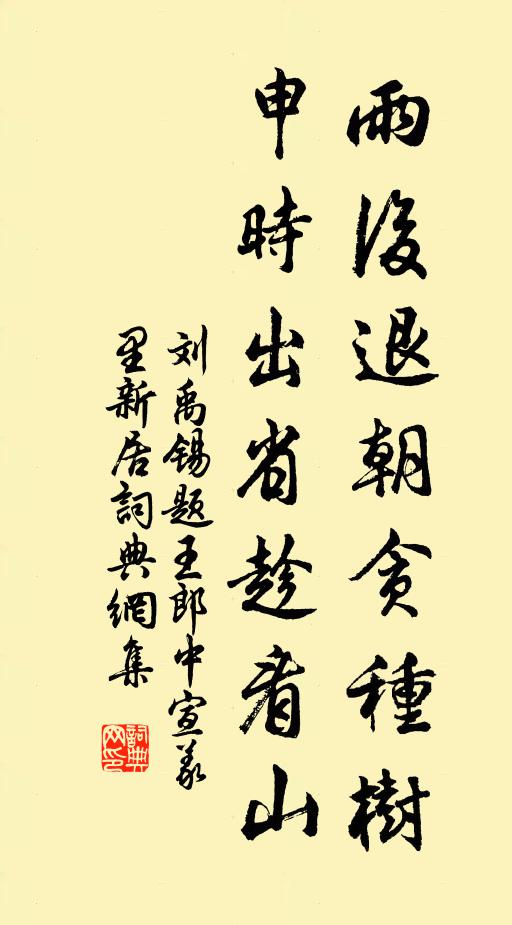 雨後退朝貪種樹
申時出省趁看山
刘禹锡题王郎中宣义
里新居詞典網集
詞典
网印